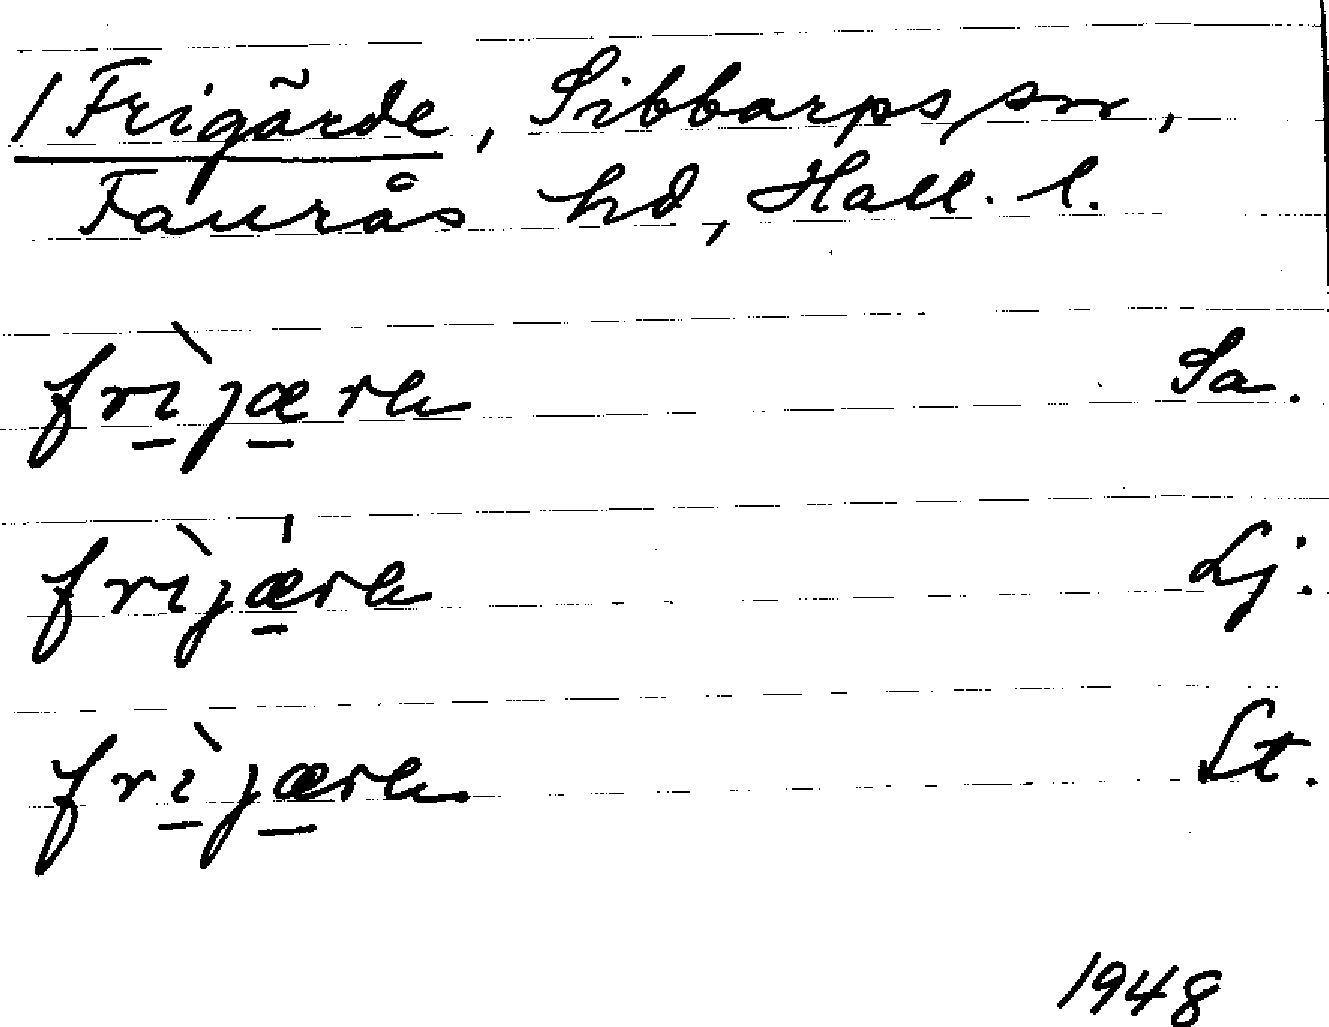 1 Frigärde, Sibbarps sn,
Faurås hd, Hall. l.
frìjærɐ Sa.
frìjæ̍rɐ Lj.
frìjærɐ St.
1948